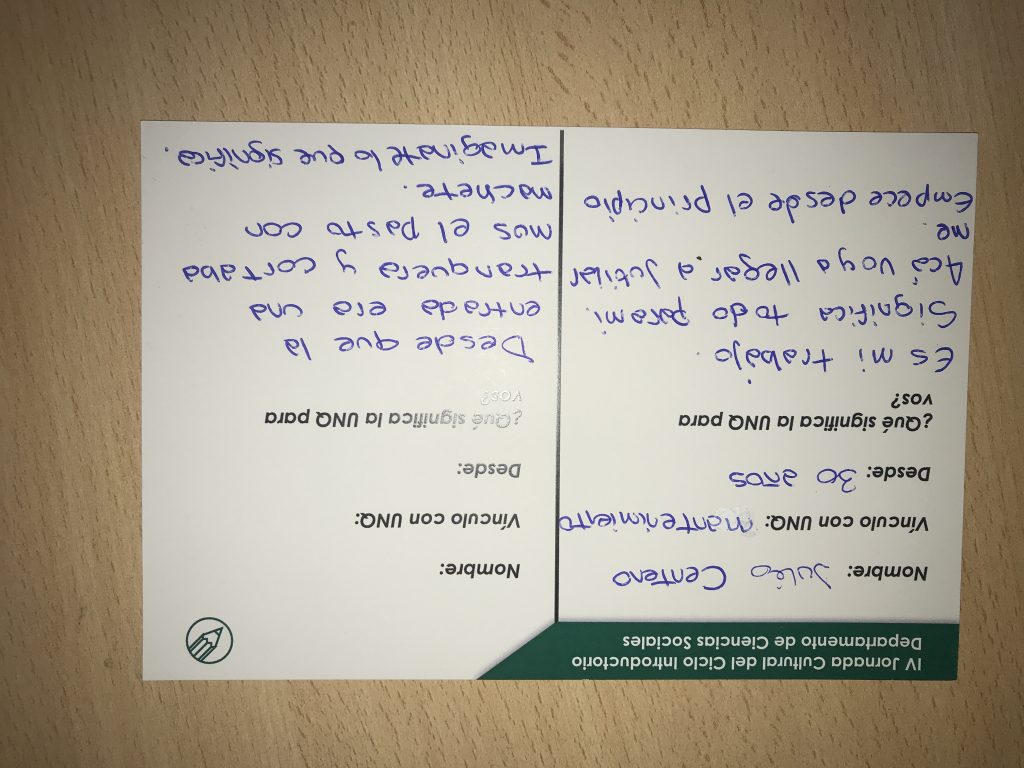 IV Jornada Cultural del Ciclo Introductorio
Departamento de Ciencias Sociales
Nombre: Julio Centeno
Vínculo con UNQ: mantenimiento
Desde: 30 años
¿Qué significa la UNQ para
vos?
Es mi trabajo.
Significa todo para mi.
Acá voy a llegar a jutilar
me.
Empece desde el principio
Nombre:
Vínculo con UNQ:
Desde:
¿Qué significa la UNQ para
vos?
Desde que la
entrada era una
tranquera y cortaba
mos el pasto con
machete.
Imaginate lo que significa.